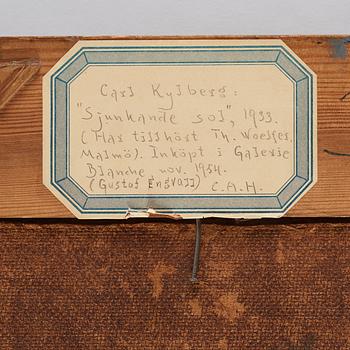 Carl Kylberg:
"Sjunkande sol", 1933.
(Har tillhört Th. Woelfer
Malmö). Inköpt i Galerie
Blanche, nov. 1954.
(Gustof Engwall) C.A.H.